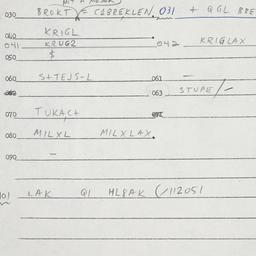 030 BROKT C1BREKLEN, 031 + QGL BRE
040 KRIGL
041 KRUG2 042 KRIGLAX
050 $
060 S+TEJS-L 061 —
063 STUPE/-
070 TUKAC+
080 MILXL MILXLAX
090 —
101 LAK Q1 HL8AK (/112051